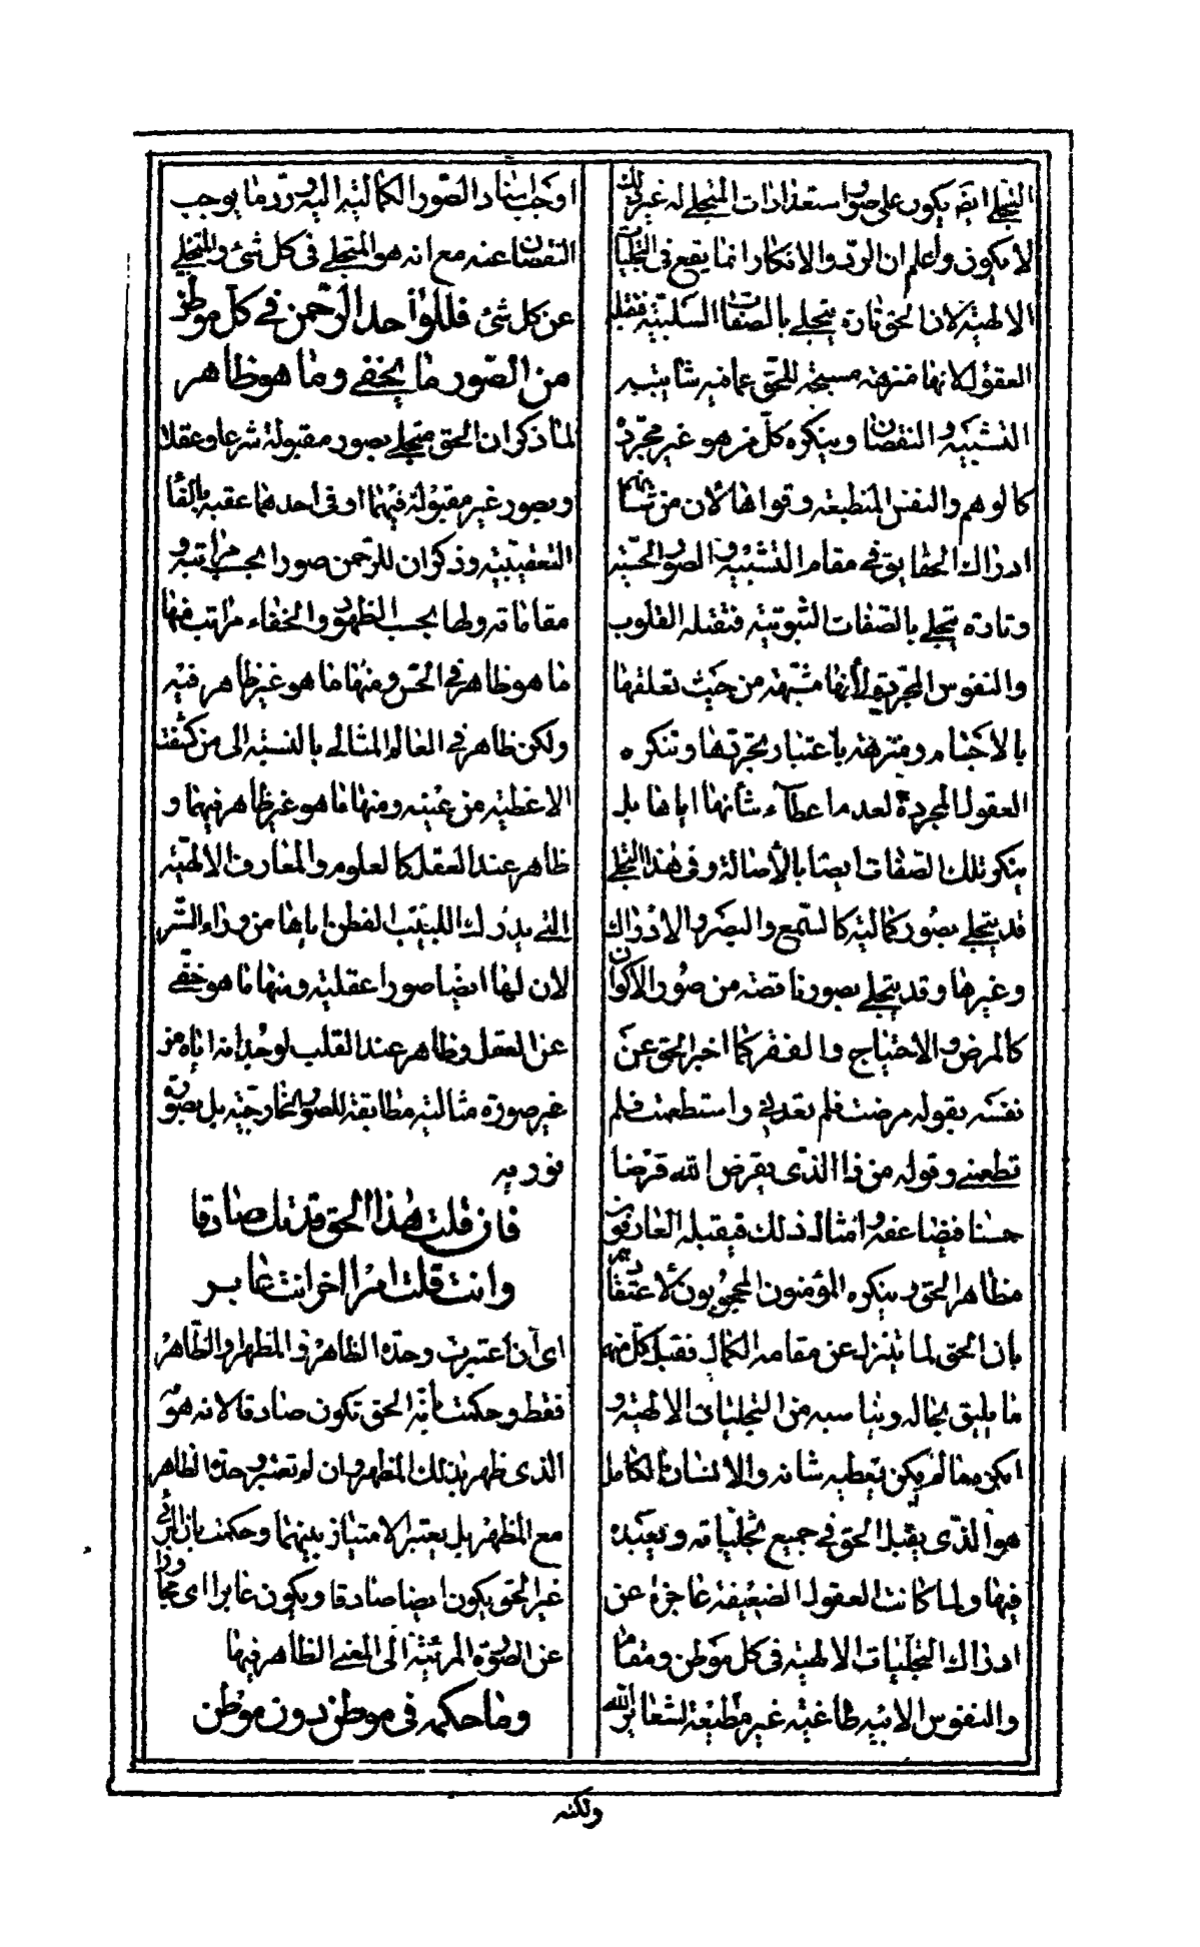 التجلي ايضا يكون على صور استعدادات المتجلى له غير ذلك
لا يكون واعلم ان الرد والانكار انما يقع فى التجليات
الالهية لان الحق تارة يتجلى بالصفات السلبية فتقبله
العقول لانها منزهة مسبحة للحق عما فيه شائبة
التشبيه والنقصان وينكره كل من هو غير مجرد
كالوهم والنفس المنطبعة وقواها لان من شأنها
ادراك الحقايق فى مقام التشبيه والصور الحسية
وتارة يتجلى بالصفات الثبوتية فتقبله القلوب
والنفوس المجردة لانها مشبهة من حيث تعلقها
بالاجسام ومنزهة باعتبار تجردها وتنكره
العقول المجردة لعدم اعطاء شأنها اياها بل
ينكر تلك الصفات ايضا بالاصالة وفى هذا التجلى
قد يتجلى بصور كمالية كالسمع والبصر والادراك
وغيرها وقد يتجلى بصور ناقصة من صور الاكوان
كالمرض والاحتياج والفقر كما اخبر الحق عن
نفسه بقوله مرضت فلم تعدنى واستطعمت فلم
تطعمنى وقوله من ذا الذى يقرض الله قرضا
حسنا فيضاعفه وامثال ذلك فيقبله العارفون
مظاهر الحق وينكره المؤمنون المحجوبون لاعتقادهم
بان الحق لما يتنزل عن مقامه الكمال فقبل كل منهم
ما يليق بحاله ويناسبه من التجليات الالهية و
انكر ما لم يكن يعطيه شانه والانسان الكامل
هو الذى يقبل الحق فى جميع تجلياته ويعبده
فيها ولما كانت العقول الضعيفة عاجزة عن
ادراك التجليات الالهية فى كل موطن ومقام
والنفوس الابية طاغية غير مطيعة لشعائر الله
اوجب اسناد الصور الكمالية اليه ورد ما يوجب
النقصان عنه مع انه هو المتجلى فى كل شئ والمتخلى
عن كل شئ فللواحد الرحمن فى كل موطن
من الصور ما يخفى وما هو ظاهر
لما ذكر ان الحق متجلى بصور مقبولة شرعا وعقلا
وبصور غير مقبولة فيهما او فى احدهما عقبه بالفاء
التعقيبية وذكر ان للرحمن صورا بحسب مراتبه و
مقاماته ولها بحسب الظهور والخفاء مراتب منها
ما هو ظاهر فى الحس ومنها ما هو غير ظاهر فيه
ولكن ظاهر فى العالم المثالى بالنسبة الى من كشفت
الاغطية من عينه ومنها ما هو غير ظاهر فيهما و
ظاهر عند العقل كالعلوم والمعارف الالهية
التى يدرك اللبيب الفطن اياها من وراء الستر
لان لها ايضا صورا عقلية ومنها ما هو خفى
عن العقل وظاهر عند القلب لوجدانه اياه من
غير صورة مثالية مطابقة للصور الخارجية بل بصورة
نورية
فان قلت هذا الحق قد تك صادقا
وان قلت امرا اخر انت عابر
اى ان اعتبرت وحدة الظاهر والمظهر والظاهر
فقط وحكمت بانه الحق تكون صادقا لانه هو
الذى ظهر بذلك المظهر وان لم تعتبر وحدة الظاهر
مع المظهر بل يعتبر الامتياز بينهما وحكمت بان المرئى
غير الحق يكون ايضا صادقا ويكون عابرا اى مجاوزا
عن الصورة المرئية الى المعنى الظاهر فيها
وما حكمه فى موطن دون موطن
ولكنه